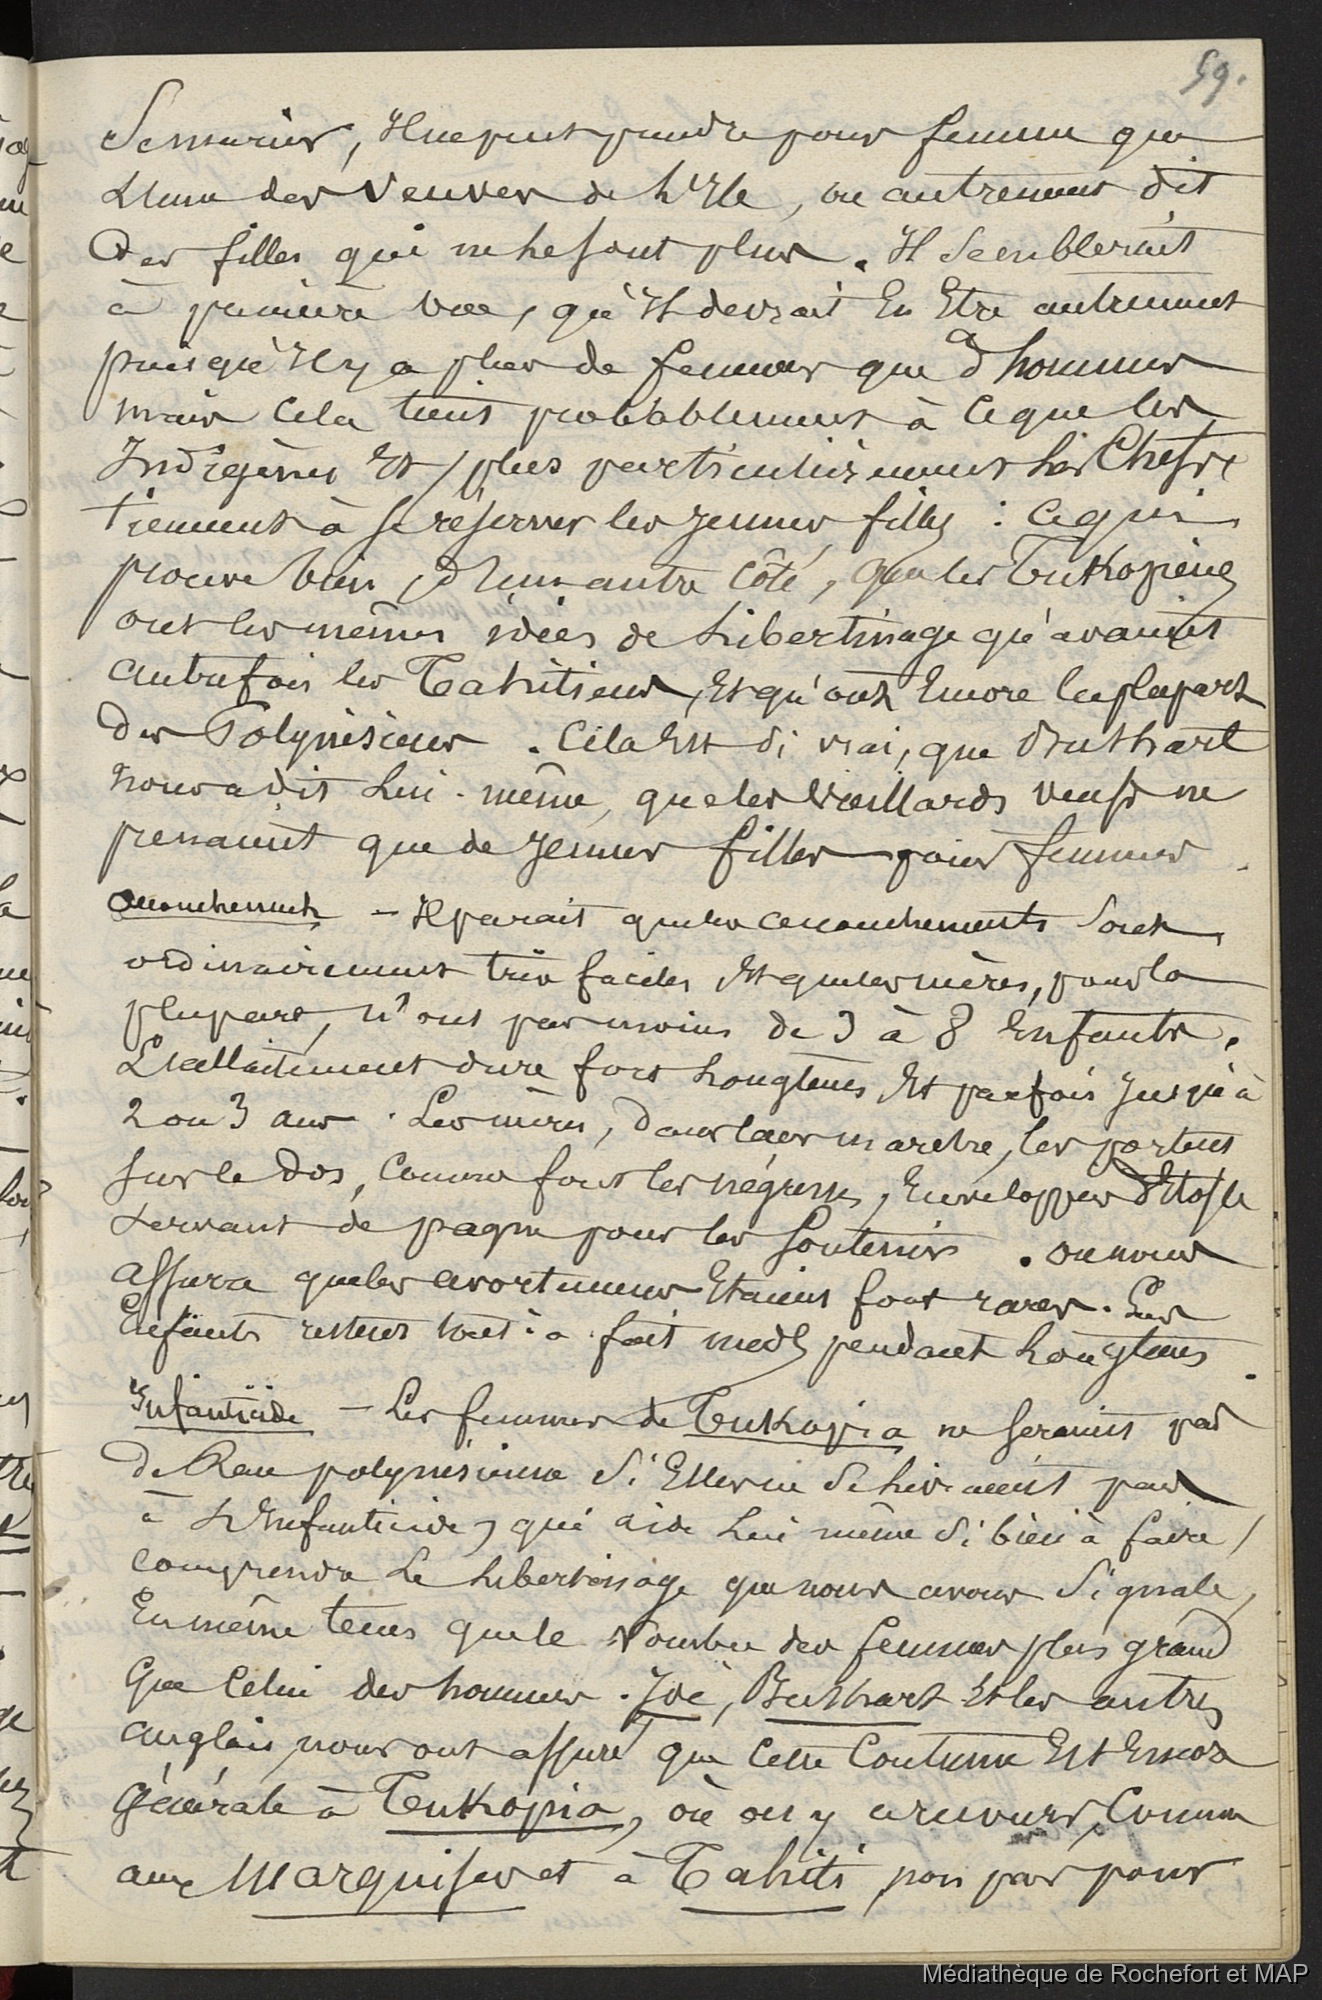 59.
Se marier, Il ne peut prendre pour femme que
L'une des Veuves de L'Ile, ou autrement dit
Des filles qui ne le sont plus. Il Semblerait
à première vue, qu'Il devrait En Etre autrement
puisqu'Il y a plus de femmes que d'hommes
mais Cela tient probablement à Ce que les
Indigènes Et plus particulièrement Les Chefs
tiennent à se réserver les jeunes filles : Ce qui
prouve bien, d'un autre Côté, que les Tukopiens
ont les mêmes idées de Libertinage qu'avaient
autrefois les Tahitiens, Et qu'ont Encore la plupart
des Polynésiens. Cela Est Si vrai, que Bushart
nous a dit Lui-même, que les Vieillards veufs ne
prenaient que de jeunes filles pour femmes.
Accouchements - Il parait que les accouchements Sont
ordinairement très faciles Et que les mères, pour la
plupart, n'ont pas moins de 3 à 8 Enfants.
L'allaitement dure fort Longtems, Et parfois jusqu'à
2 ou 3 ans. Les mères, dans leur marche, les portent
sur le dos, Comme font les négresses, Enveloppés d'Etoffe
servant de pagne pour les Soutenir. On nous
assura que les avortemens Etaient fort rares. Les
Enfants restent tout-à-fait nuds pendant Longtems.
Infanticide - Les femmes de Tukopia ne seraient pas
de Race polynésienne Si Elles ne Se livraient pas
à L'Infanticide, qui aide Lui même Si bien à faire
comprendre Le Libertinage que nous avons Signalé,
En même tems que le Nombre des femmes plus grand
que Celui des hommes. Joë, Bushart Et les autres
anglais, nous ont assuré que Cette Coutume Est Encore
Générale à Tukopia, où on y a recours, Comme
aux Marquises et à Tahiti, non pas pour
Médiathèque de Rochefort et MAP